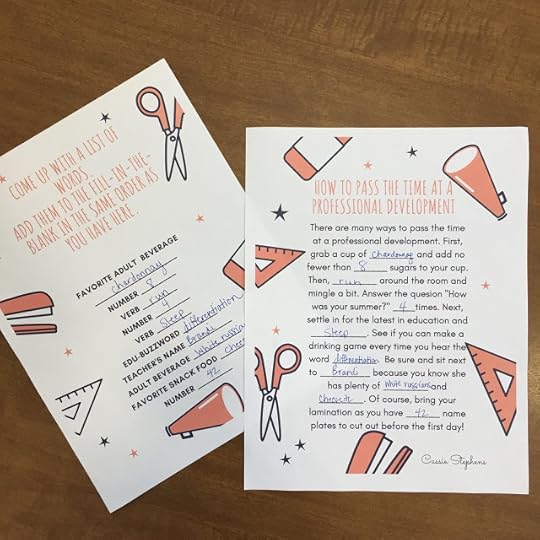 COME UP WITH A LIST OF
WORDS.
ADD THEM TO THE FILL-IN-THE-
BLANK IN THE SAME ORDER AS
YOU HAVE HERE.
FAVORITE ADULT BEVERAGE
chardonnay
NUMBER 8
VERB run
NUMBER 4
VERB Sleep
EDU-BUZZWORD differentiation
TEACHER'S NAME Brandi
ADULT BEVERAGE White russia
FAVORITE SNACK FOOD chee
NUMBER 42
HOW TO PASS THE TIME AT A
PROFESSIONAL DEVELOPMENT
There are many ways to pass the time
at a professional development. First,
grab a cup of chardonnay and add no
fewer than 8 sugars to your cup.
Then, run around the room and
mingle a bit. Answer the quesion "How
was your summer?" 4 times. Next,
settle in for the latest in education and
Sleep. See if you can make a
drinking game every time you hear the
word differentiation. Be sure and sit next
to Brandi because you know she
has plenty of white russians and
cheese it. Of course, bring your
lamination as you have 42 name
plates to cut out before the first day!
Cassie Stephens